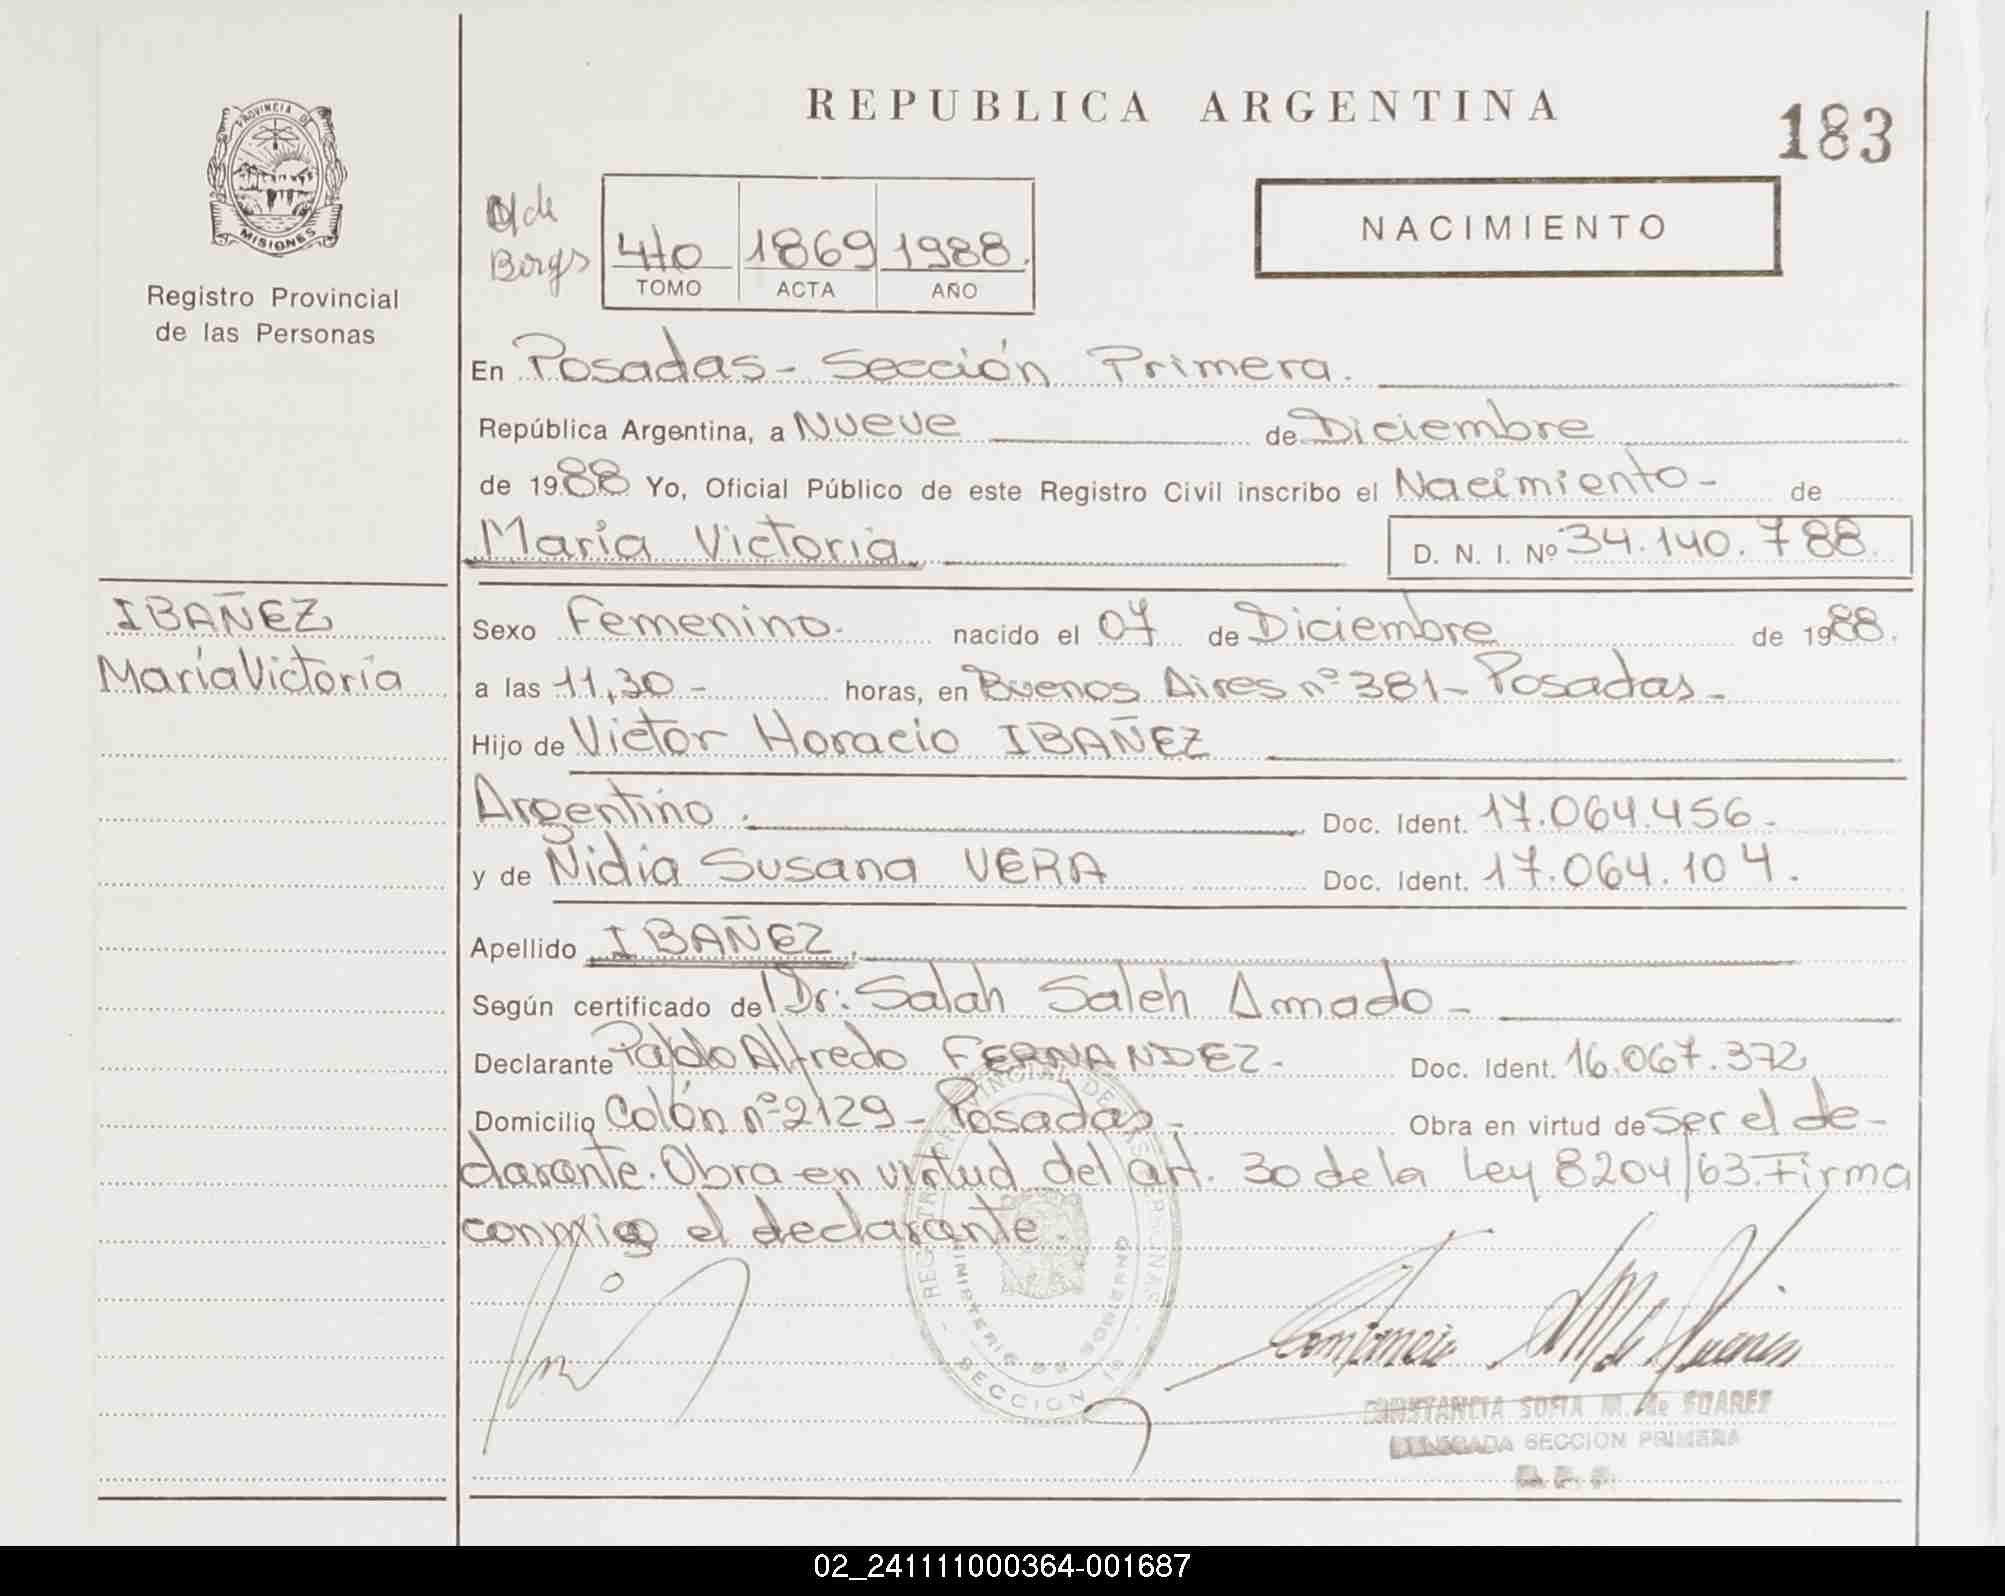 REPUBLICA ARGENTINA
183
PROVINCIA DE
MISIONES
Registro Provincial
de las Personas
NACIMIENTO
1869 1988.
TOMO ACTA AÑO
En Posadas - Sección Primera.
República Argentina, a Nueve de Diciembre
de 1988 Yo, Oficial Público de este Registro Civil inscribo el Nacimiento - de
María Victoria D. N. I. Nº 34.140.788.
IBAÑEZ
María Victoria
Sexo Femenino. nacido el 07 de Diciembre de 1988.
a las 11,30 - horas, en Buenos Aires nº 381 - Posadas -
Hijo de Victor Horacio IBAÑEZ
Argentino. Doc. Ident. 17.064.456.
y de Nidia Susana VERA Doc. Ident. 17.064.104.
Apellido IBAÑEZ.
Según certificado del Dr: Salah Saleh Amado -
Declarante Pablo Alfredo FERNANDEZ. Doc. Ident. 16.067.372
Domicilio Colón nº 2129 - Posadas - Obra en virtud de ser el de-
clarante. Obra en virtud del art. 30 de la Ley 8204/63. Firma
conmigo el declarante
REGISTRO PROVINCIAL DE LAS PERSONAS
MINISTERIO DE GOBIERNO
SECCION 1ª
CONSTANCIA SOFIA M. de SUAREZ
DELEGADA SECCION PRIMERA
02_241111000364-001687